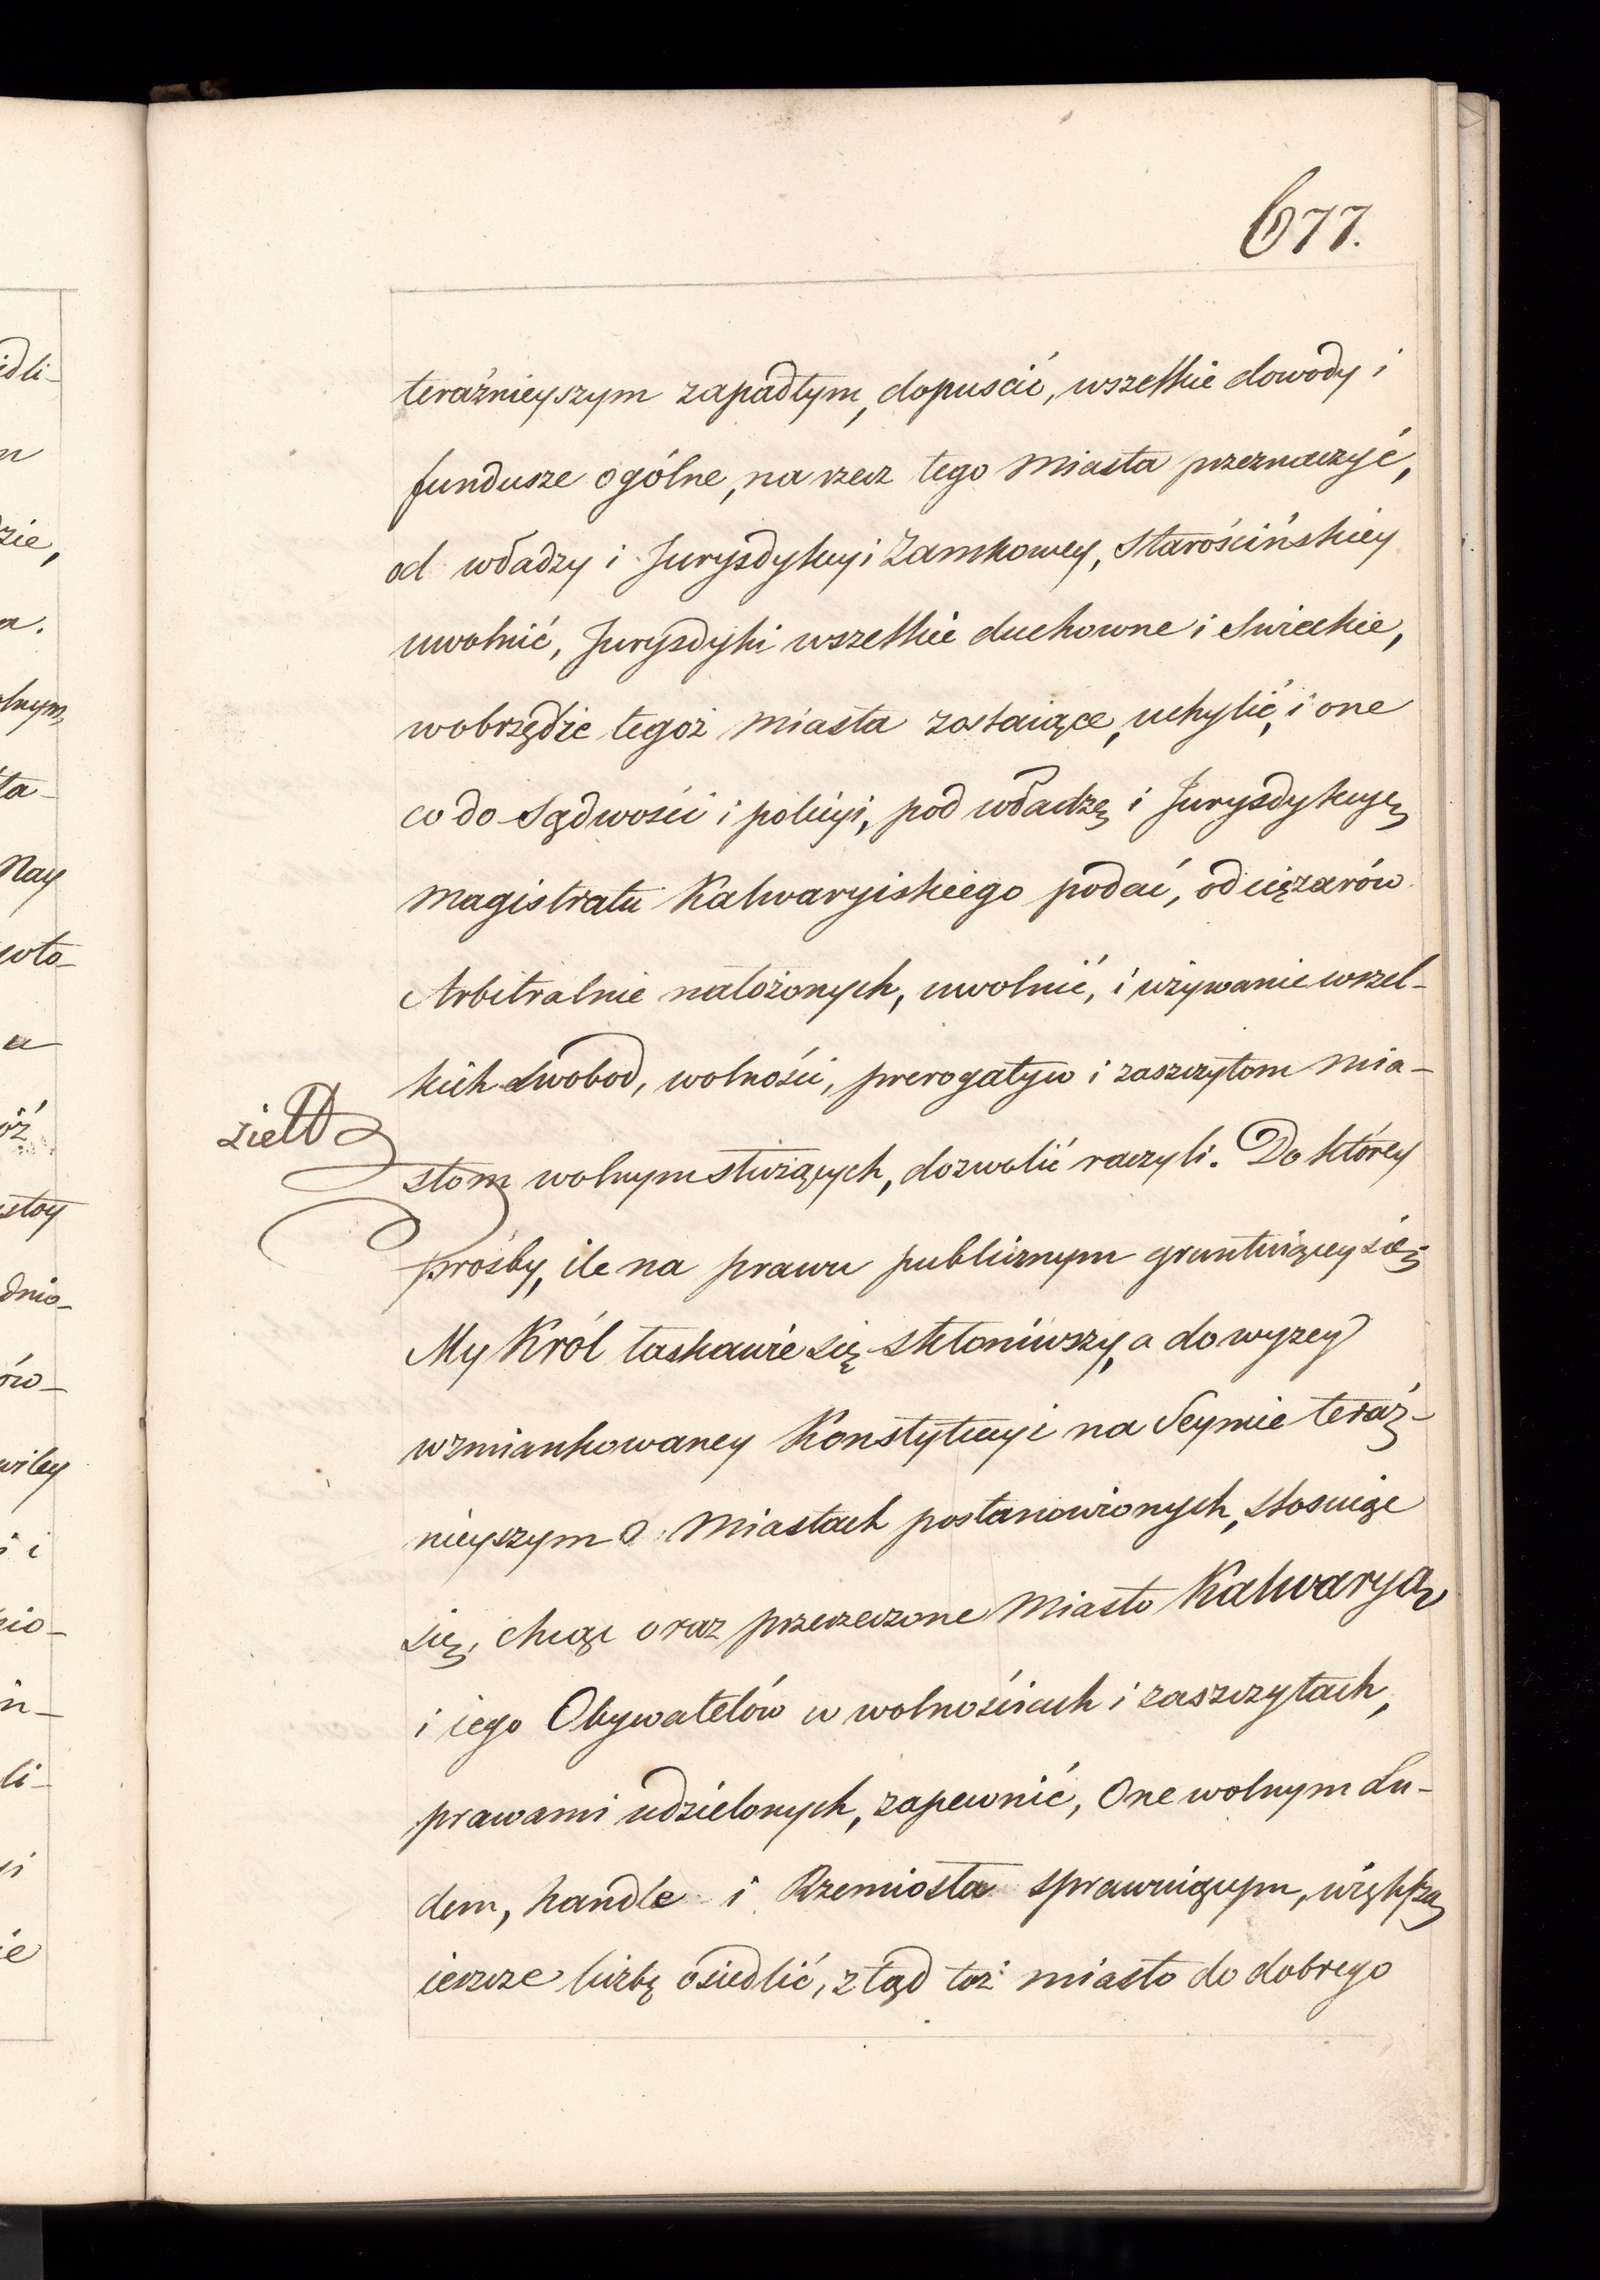 677.
teraźnieyszym zapadłym, dopuścić, wszelkie dowody i
fundusze ogólne, na rzecz tego Miasta przeznaczyć,
od władzy i Jurysdykcyi Zamkowey, Starościńskiey
uwolnić, Jurysdyki wszelkie duchowne i Swieckie,
wobrzędzie tegoż Miasta zostaiące, uchylić, i one
co do Sądwości i policyi, pod władzę i Jurysdykcyę
Magistratu Kalwaryiskiego podać, od ciężarów
Arbitralnie nałożonych, uwolnić, i używanie wszel-
kich Swobod, wolności, prerogatyw i zaszczytom Mia-
stom wolnym służących, dozwolić raczyli. Do którey
prośby, ile na prawu publicznym gruntuiącey się
My Król łaskawie się skłoniwszy, a do wyzey
wzmiankowaney Konstytucyi na Seymie teraź-
nieyszym o Miastach postanowionych, stosuiąc
się, chcąc oraz przerzeczone Miasto Kalwaryą
i iego Obywatelów w wolnościach i zaszczytach,
prawami udzielonych, zapewnić, One wolnym Lu-
dem, handle i Rzemiosła sprawuiącym, większą
ieszcze liczbę osiedlić, ztąd toż miasto do dobrego